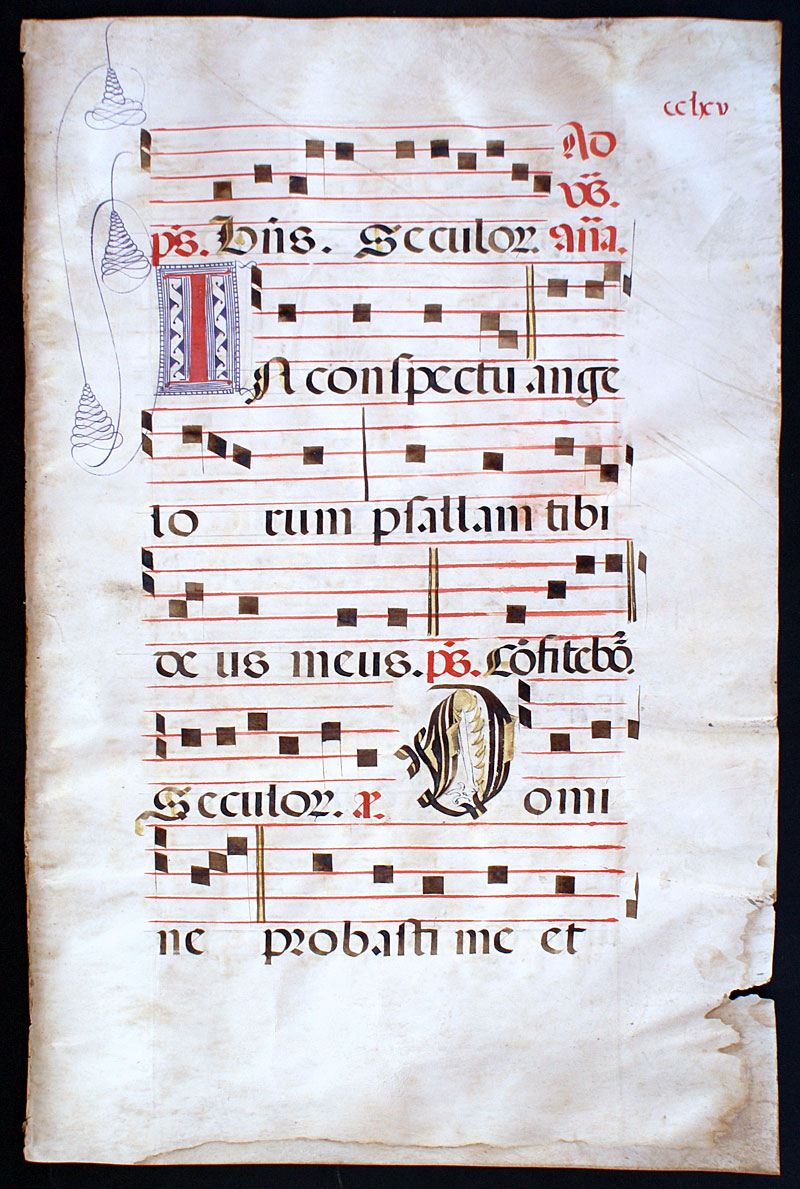 cclxv
Ad
vḡ.
ps. Dn̄s. Seculor. an̄a.
IN conspectu ange
lo rum psallam tibi
de us meus. ps. Cōfitebōr.
Seculor. ax. Domi
ne probasti me et